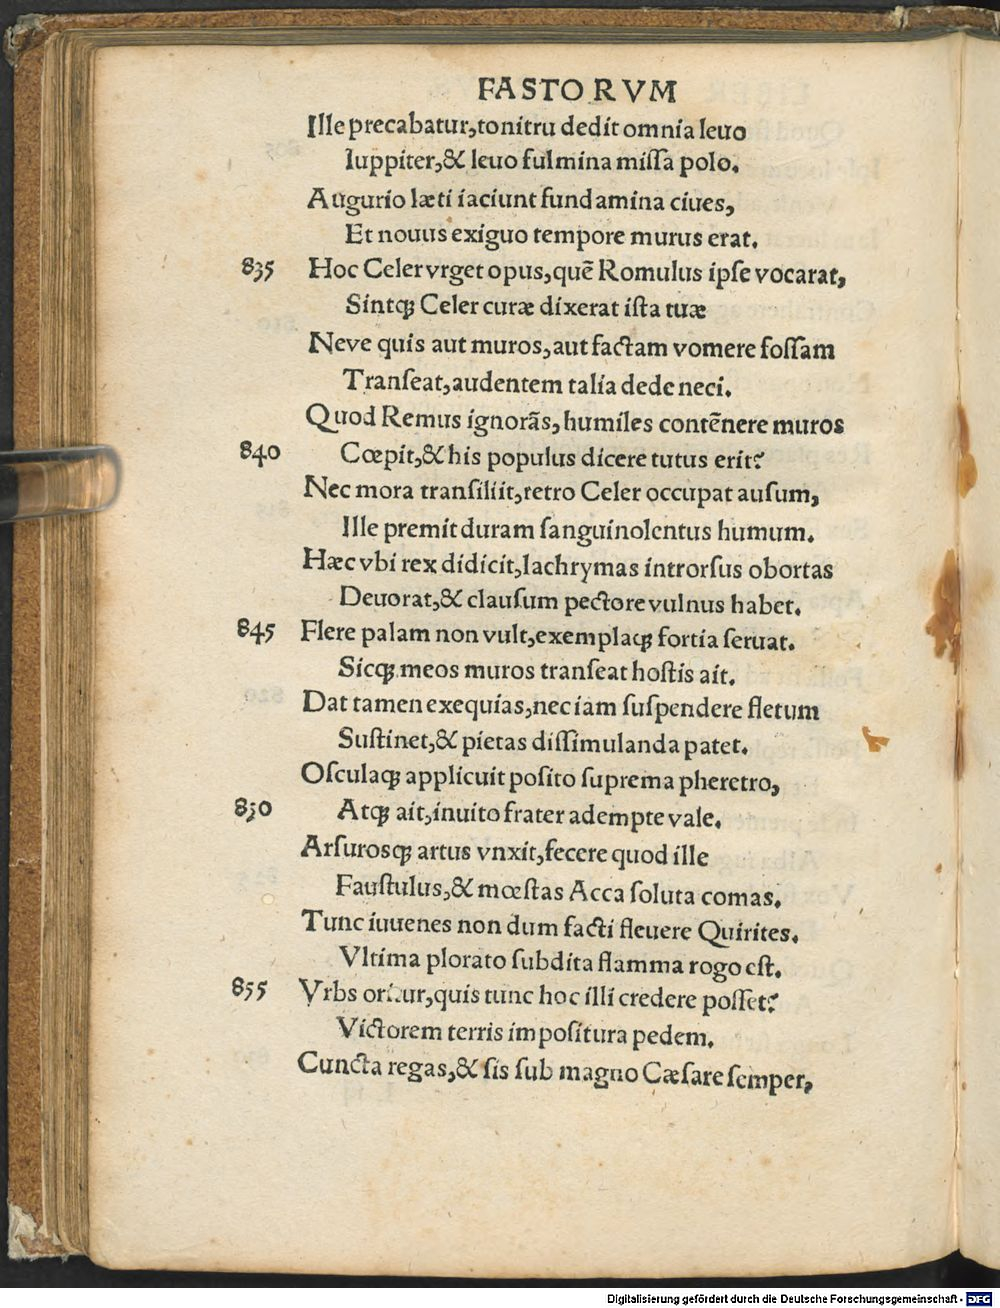 FASTORVM
Ille precabatur, tonitru dedit omnia leuo
Iuppiter, & leuo fulmina missa polo.
Augurio læti iaciunt fundamina ciues,
Et nouus exiguo tempore murus erat.
835 Hoc Celer vrget opus, quē Romulus ipse vocarat,
Sintqꝫ Celer curæ dixerat ista tuæ
Neve quis aut muros, aut factam vomere fossam
Transeat, audentem talia dede neci.
Quod Remus ignorãs, humiles contēnere muros
840 Cœpit, & his populus dicere tutus erit?
Nec mora transiliit, retro Celer occupat ausum,
Ille premit duram sanguinolentus humum.
Hæc vbi rex didicit, lachrymas introrsus obortas
Deuorat, & clausum pectore vulnus habet.
845 Flere palam non vult, exemplaqꝫ fortia seruat.
Sicqꝫ meos muros transeat hostis ait.
Dat tamen exequias, nec iam suspendere fletum
Sustinet, & pietas dissimulanda patet.
Osculaqꝫ applicuit posito suprema pheretro,
830 Atqꝫ ait, inuito frater adempte vale.
Arsurosqꝫ artus vnxit, fecere quod ille
Faustulus, & mœstas Acca soluta comas.
Tunc iuuenes non dum facti fleuere Quirites.
Vltima plorato subdita flamma rogo est.
855 Vrbs oritur, quis tunc hoc illi credere posset?
Victorem terris impositura pedem.
Cuncta regas, & sis sub magno Cæsare semper,
Digitalisierung gefördert durch die Deutsche Forschungsgemeinschaft - DFG